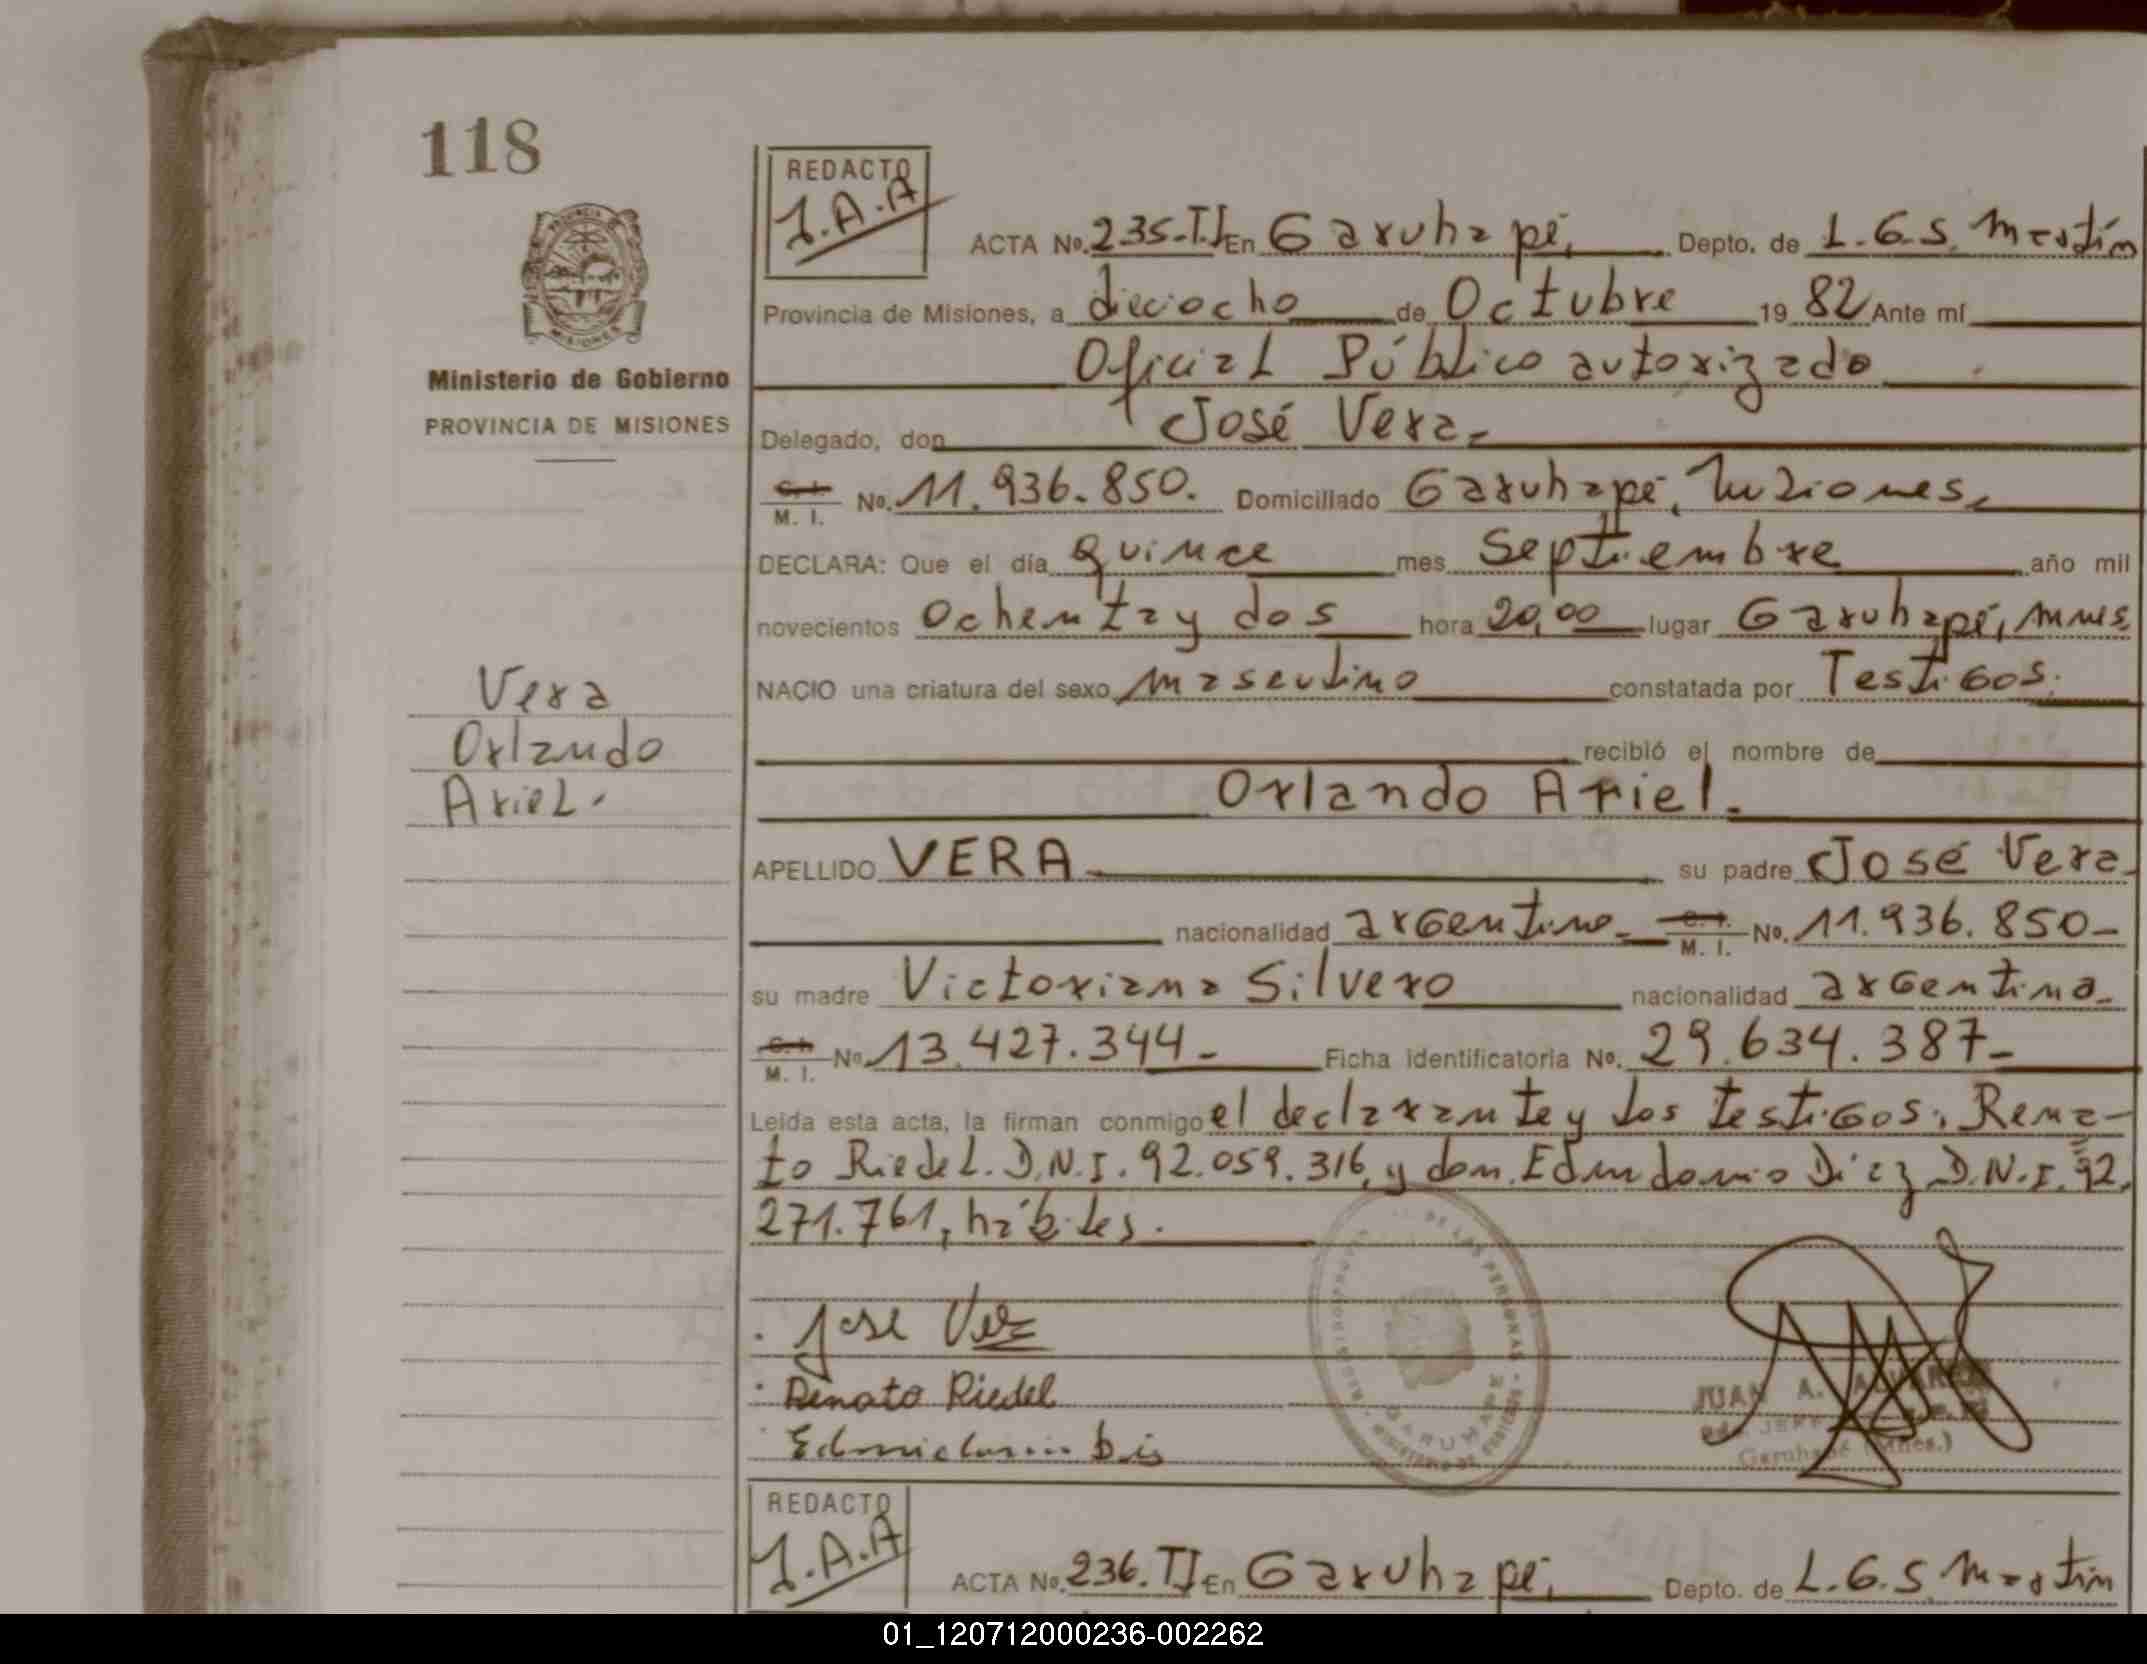 118
MISIONES
Ministerio de Gobierno
PROVINCIA DE MISIONES
REDACTO
J.A.A
ACTA No. 235-T.I En Garuhapé, Depto. de L.G.S. Martín
Provincia de Misiones, a dieciocho de Octubre 19 82 Ante mí
Oficial Público autorizado
Delegado, don José Vera
C. I.
M. I. No. 11.936.850. Domiciliado Garuhapé, Misiones,
DECLARA: Que el día quince mes Septiembre año mil
novecientos Ochenta y dos hora 20,00 lugar Garuhapé, Mnes.
NACIO una criatura del sexo masculino constatada por Testigos.
recibió el nombre de
Orlando Ariel.
APELLIDO VERA su padre José Vera
nacionalidad argentino C. I.
M. I. No. 11.936.850-
su madre Victoriana Silvero nacionalidad argentina
C. I.
M. I. No 13.427.344- Ficha identificatoria No. 29.634.387-
Leída esta acta, la firman conmigo el declarante y los testigos: Rena-
to Riedel. D.N.I. 92.059.316, y don D.N.I. 92.
271.761, hábiles.
Vera
Orlando
Ariel.
Jose Vera
Renato Riedel
DE LAS PERSONAS
GARUHAPE
JUAN A.
Garuhapé (Mnes.)
REDACTO
J.A.A
ACTA No. 236.TI En Garuhapé, Depto. de L.G.S Martín
01_120712000236-002262